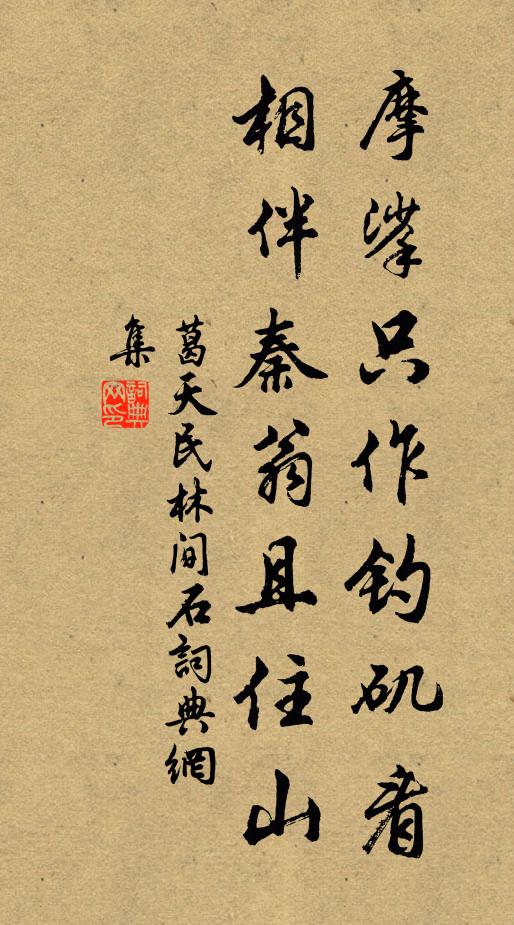 摩挲只作钓矶看
相伴秦翁且住山
葛天民林间石詞典網
集
詞典网印